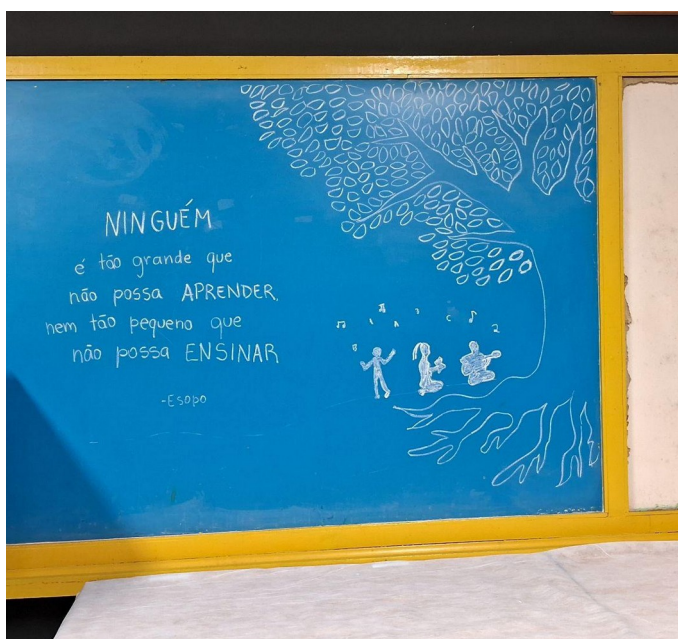 NINGUÉM
é tão grande que
não possa APRENDER,
nem tão pequeno que
não possa ENSINAR
-Esopo